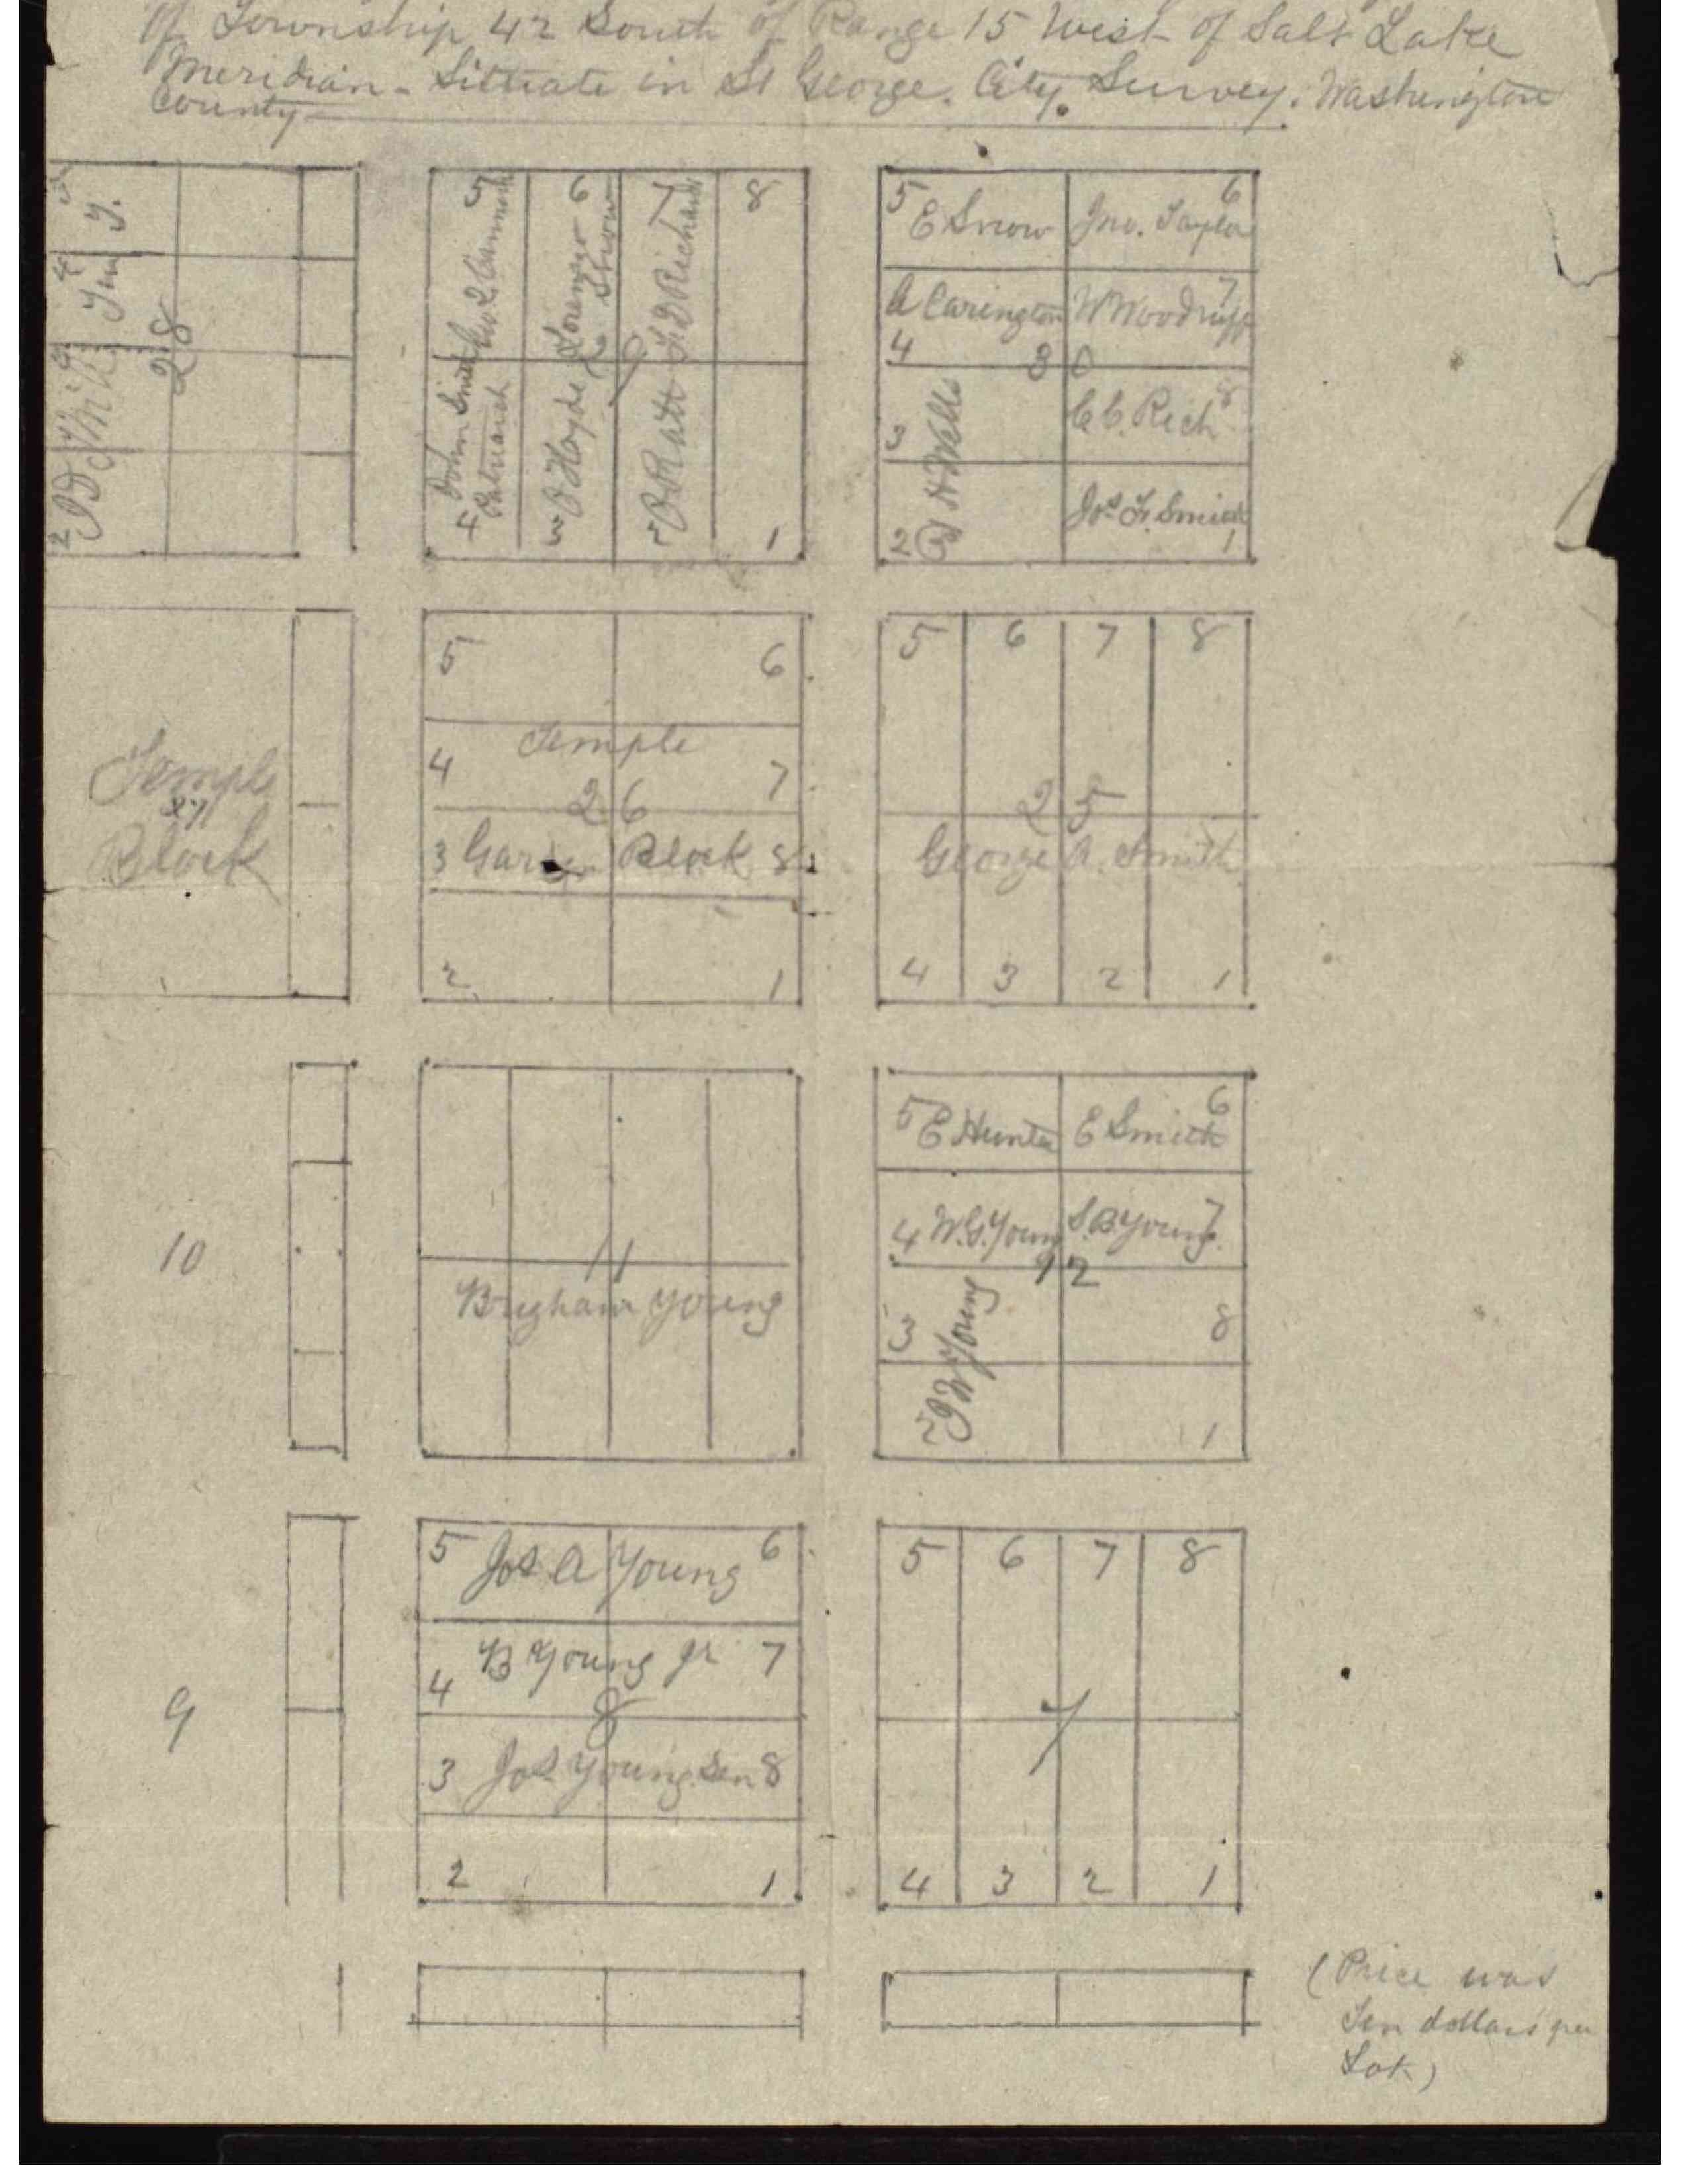 of Township 42 South of Range 15 West of Salt Lake
Meridian - Situate in St George. City Survey. Washington
County
2 3 4
28
5 6 7 8
Geo Q Cannon
Lorenzo Snow
F D Richards
9
4 John Smith
Patriarch
3 O Hyde
2 O Pratt
1
5 E Snow
Jno. Taylor 6
A Carington
4
W Woodruff 7
30
3
D H Wells
2
C C. Rich 8
Jos F. Smith
1
Temple
27
Block
5 6
Temple
4 7
26
3 Garden Block 8
2 1
5 6 7 8
25
George A. Smith
4 3 2 1
10
11
Brigham Young
5 E Hunter
E Smith 6
4 W.G. Young
S. B. Young 7
12
3 8
2 J W Young
1
9
5 Jos A Young 6
4 B Young Jr 7
8
3 Jos Young Sen 8
2 1
5 6 7 8
7
4 3 2 1
(Price was
Ten dollars per
Lot)